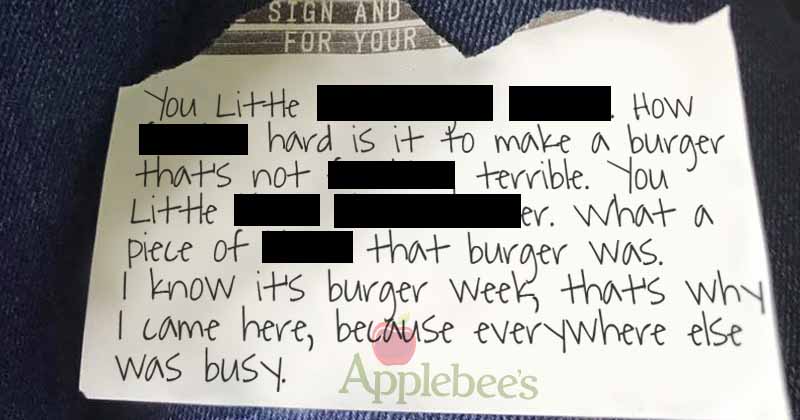 SIGN AND
FOR YOUR
You Little . How
hard is it to make a burger
that's not terrible. You
Little er. What a
piece of that burger was.
I know it's burger week, that's why
I came here, because everywhere else
was busy.
Applebee's